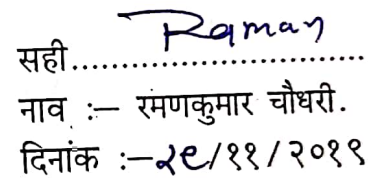 सही.............................. Raman
नाव :— रमणकुमार चौधरी.
दिनांक :—२९/११/२०१९